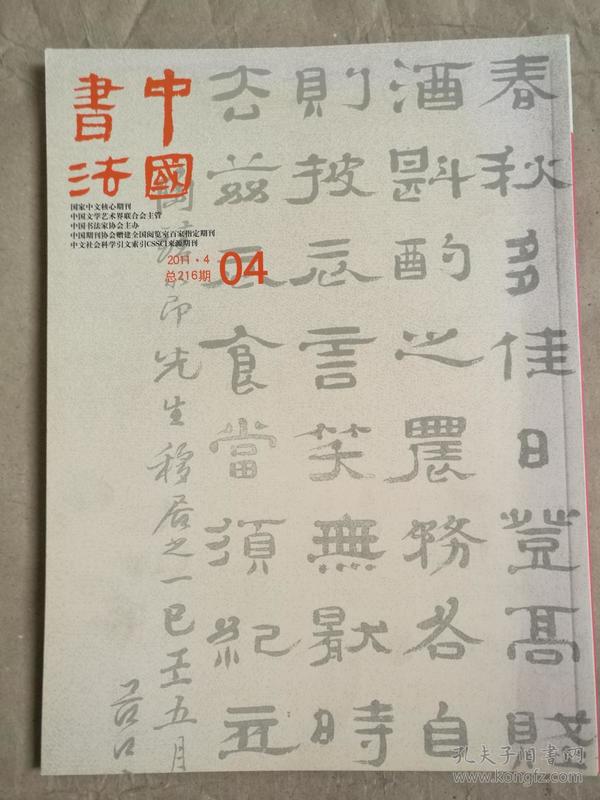 中國
書法
国家中文核心期刊
中国文学艺术界联合会主管
中国书法家协会主办
中国期刊协会赠建全国阅览室百家指定期刊
中文社会科学引文索引CSSCI来源期刊
2011·4
总216期
04
春秋多佳日登高賦
酒斟酌之農務各自
則披衣言笑無厭時
去茲衣食當須紀
先生移居之一 五月
孔夫子旧书网
www.kongfz.com